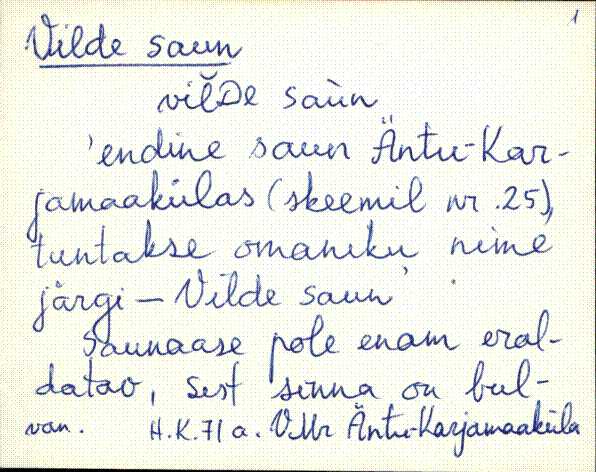 1
Vilde saun
vil̆De saùn
'endine saun Äntu-Kar-
jamaakülas (skeemil nr. 25),
tuntakse omaniku nime
järgi – Vilde saun'.
Saunaase pole enam eral-
datav, sest sinna on bul-
van. H.K. 71 a. VMr Äntu-Karjamaaküla